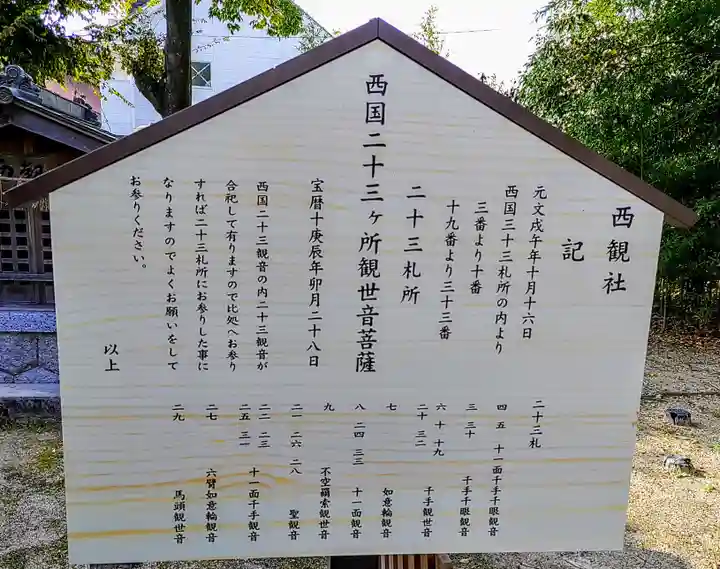 西観社
記
元文戌午年十月十六日
西国三十三札所の内より
三番より十番
十九番より三十三番
二十三札所
西国二十三ヶ所観世音菩薩
宝暦十庚辰年卯月二十八日
西国二十三観音の内二十三観音が
合祀して有りますので比処へお参り
すれば二十三札所にお参りした事に
なりますのでよくお願いをして
お参りください。
以上
二十三札
四 五 十一面千手千眼観音
三 三十 千手千眼観音
六 十 十九
二十 三二 千手観世音
七 如意輪観音
八 二四 三三 十一面観音
九 不空羂索観世音
二一 二六 二八 聖観音
二二 二三
二五 三一 十一面千手観音
二七 六臂如意輪観音
二九 馬頭観世音